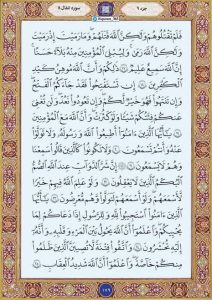 جزء ۹
سوره انفال ۸
فَلَمْ تَقْتُلُوهُمْ وَلَٰكِنَّ اللَّهَ قَتَلَهُمْ وَمَا رَمَيْتَ إِذْ رَمَيْتَ
وَلَٰكِنَّ اللَّهَ رَمَىٰ وَلِيُبْلِيَ الْمُؤْمِنِينَ مِنْهُ بَلَاءً حَسَنًا
إِنَّ اللَّهَ سَمِيعٌ عَلِيمٌ ۝ ذَٰلِكُمْ وَأَنَّ اللَّهَ مُوهِنُ كَيْدِ
الْكَافِرِينَ ۝ إِنْ تَسْتَفْتِحُوا فَقَدْ جَاءَكُمُ الْفَتْحُ
وَإِنْ تَنْتَهُوا فَهُوَ خَيْرٌ لَكُمْ وَإِنْ تَعُودُوا نَعُدْ وَلَنْ تُغْنِيَ
عَنْكُمْ فِئَتُكُمْ شَيْئًا وَلَوْ كَثُرَتْ وَأَنَّ اللَّهَ مَعَ الْمُؤْمِنِينَ
۝ يَا أَيُّهَا الَّذِينَ آمَنُوا أَطِيعُوا اللَّهَ وَرَسُولَهُ وَلَا تَوَلَّوْا
عَنْهُ وَأَنْتُمْ تَسْمَعُونَ ۝ وَلَا تَكُونُوا كَالَّذِينَ قَالُوا سَمِعْنَا
وَهُمْ لَا يَسْمَعُونَ ۝ إِنَّ شَرَّ الدَّوَابِّ عِنْدَ اللَّهِ الصُّمُّ
الْبُكْمُ الَّذِينَ لَا يَعْقِلُونَ ۝ وَلَوْ عَلِمَ اللَّهُ فِيهِمْ خَيْرًا
لَأَسْمَعَهُمْ وَلَوْ أَسْمَعَهُمْ لَتَوَلَّوْا وَهُمْ مُعْرِضُونَ ۝ يَا أَيُّهَا
الَّذِينَ آمَنُوا اسْتَجِيبُوا لِلَّهِ وَلِلرَّسُولِ إِذَا دَعَاكُمْ لِمَا
يُحْيِيكُمْ وَاعْلَمُوا أَنَّ اللَّهَ يَحُولُ بَيْنَ الْمَرْءِ وَقَلْبِهِ وَأَنَّهُ
إِلَيْهِ تُحْشَرُونَ ۝ وَاتَّقُوا فِتْنَةً لَا تُصِيبَنَّ الَّذِينَ ظَلَمُوا
مِنْكُمْ خَاصَّةً وَاعْلَمُوا أَنَّ اللَّهَ شَدِيدُ الْعِقَابِ ۝
۱۷۹